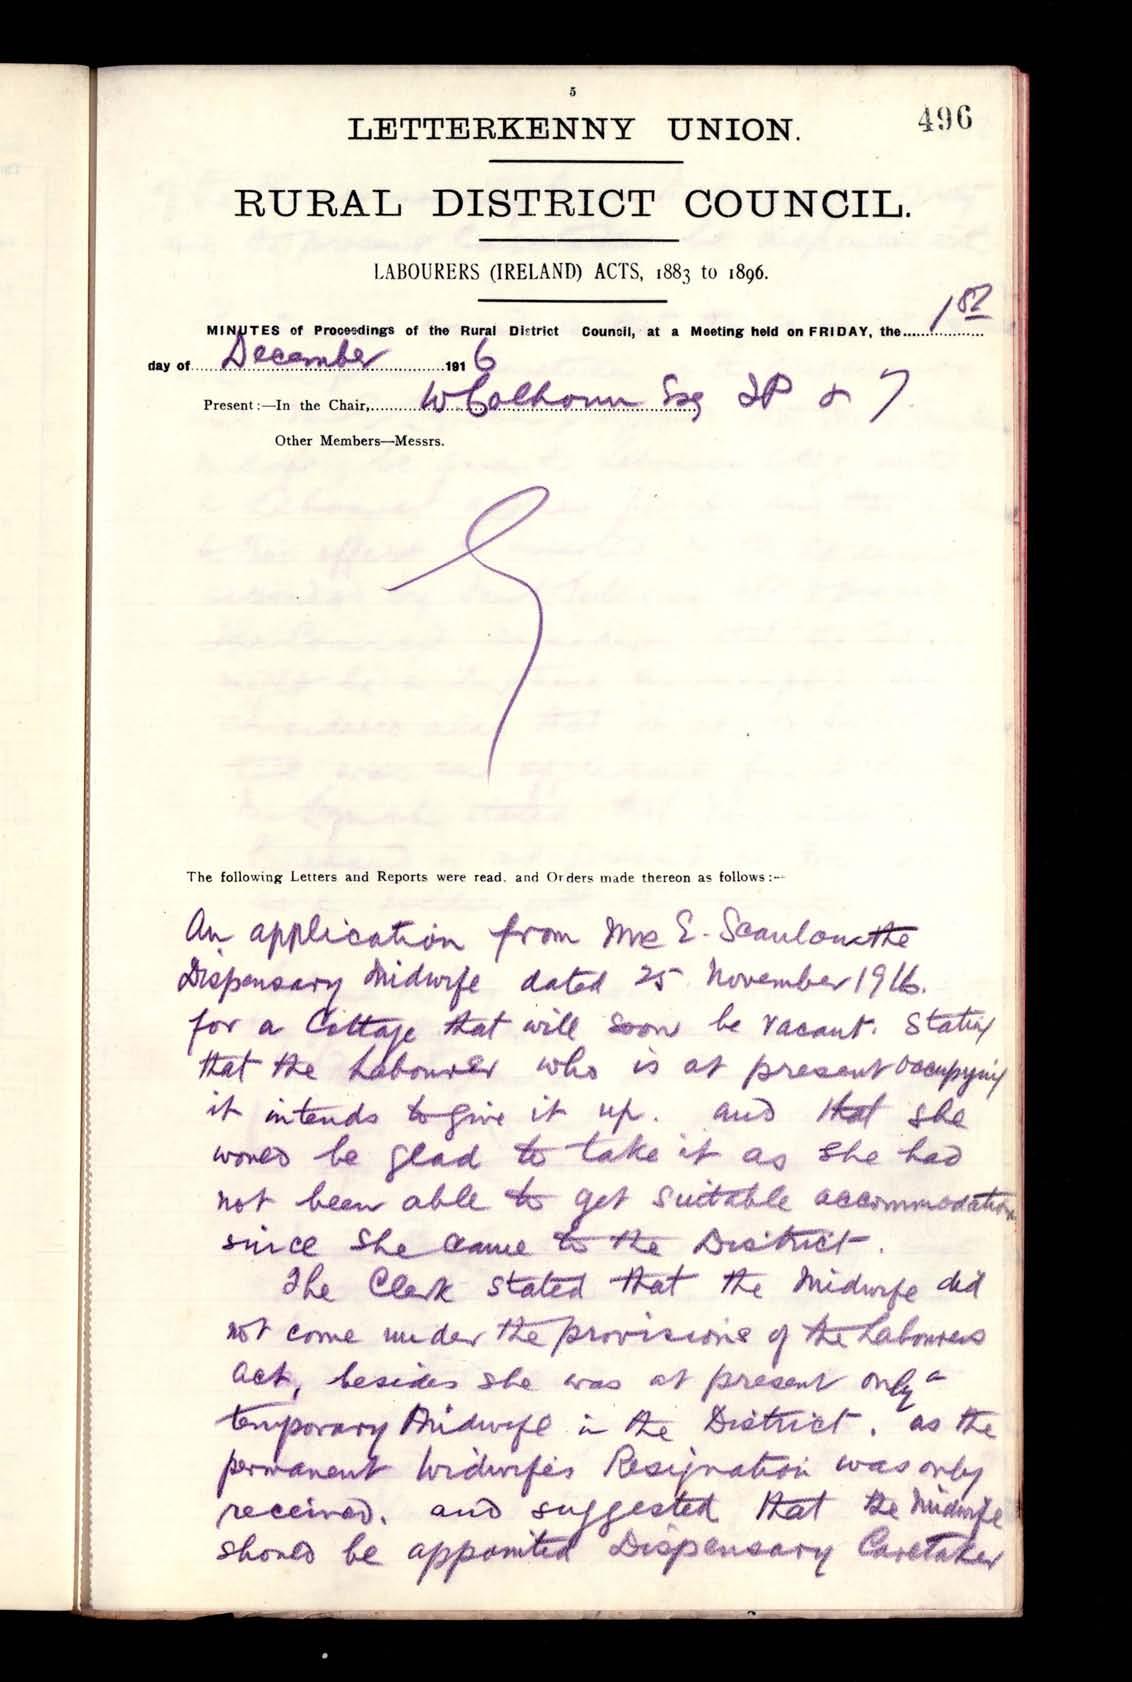 5
496
LETTERKENNY UNION.
RURAL DISTRICT COUNCIL.
LABOURERS (IRELAND) ACTS, 1883 to 1896.
MINUTES of Proceedings of the Rural District Council, at a Meeting held on FRIDAY, the 1st
day of December 1916
Present:—In the Chair, W Colhoun Esq JP & 7
Other Members—Messrs.
The following Letters and Reports were read, and Orders made thereon as follows:—
An application from Mrs E. Scanlon the
Dispensary Midwife dated 25 November 1916.
for a Cottage that will soon be vacant. Stating
that the Labourer who is at present occupying
it intends to give it up. and that she
would be glad to take it as she had
not been able to get suitable accommodation
since she came to the District.
The Clerk stated that the Midwife did
not come under the provisions of the Labourers
Act, besides she was at present only a
temporary Midwife in the District. as the
permanent Midwife's Resignation was only
received. and suggested that the Midwife
should be appointed Dispensary Caretaker